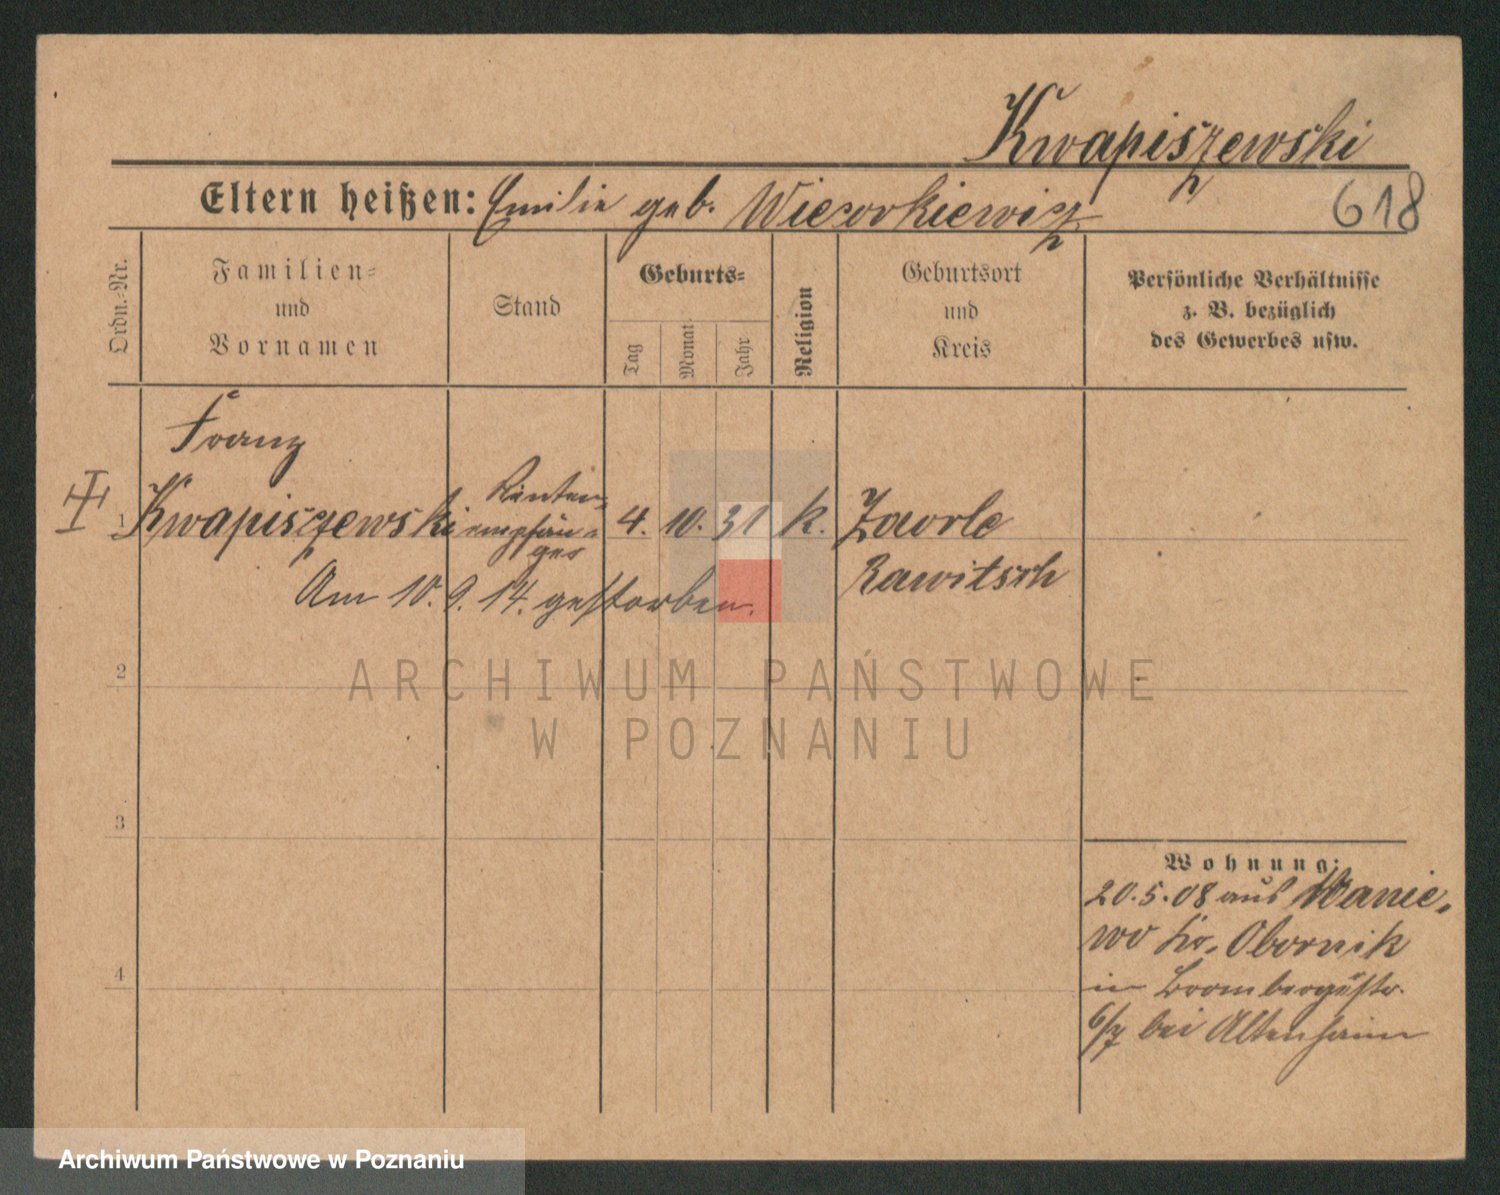 Kwapiszewski
Eltern heißen: Emilie geb. Wiesorkiewicz
618
Ordn.-Nr.
Familien-
und
Vornamen
Stand
Geburts-
Tag
Monat
Jahr
Religion
Geburtsort
und
Kreis
Persönliche Verhältnisse
z. B. bezüglich
des Gewerbes usw.
Franz
1 Kwapiszewski
Renten-
empfän-
ger
4. 10. 31 k.
Zavrle
Rawitsch
Am 10. 9. 14. gestorben.
2
3
4
Wohnung:
20.5.08 aus Wanie-
wo Kr. Obornik
in Brombergerstr.
6/7 bei Altenheim
ARCHIWUM PAŃSTWOWE
W POZNANIU
Archiwum Państwowe w Poznaniu